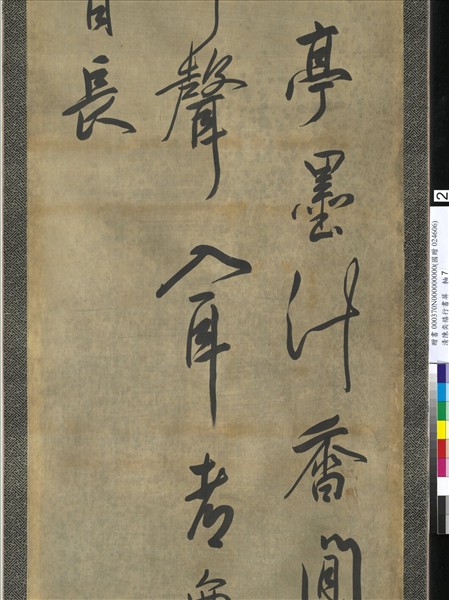 亭墨汁香
聲入耳者
長
2
贈書 000370N000000000(國贈 024606)
清陳奕禧行書屏 軸7